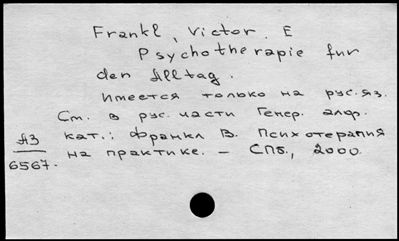 Frankl, Victor. E
Psychotherapie fur
den Alltag.
Имеется только на рус. яз.
См. в рус. части Генер. алф.
АЗ кат.: Франкл В. Психотерапия
6567. на практике. – СПб., 2000.